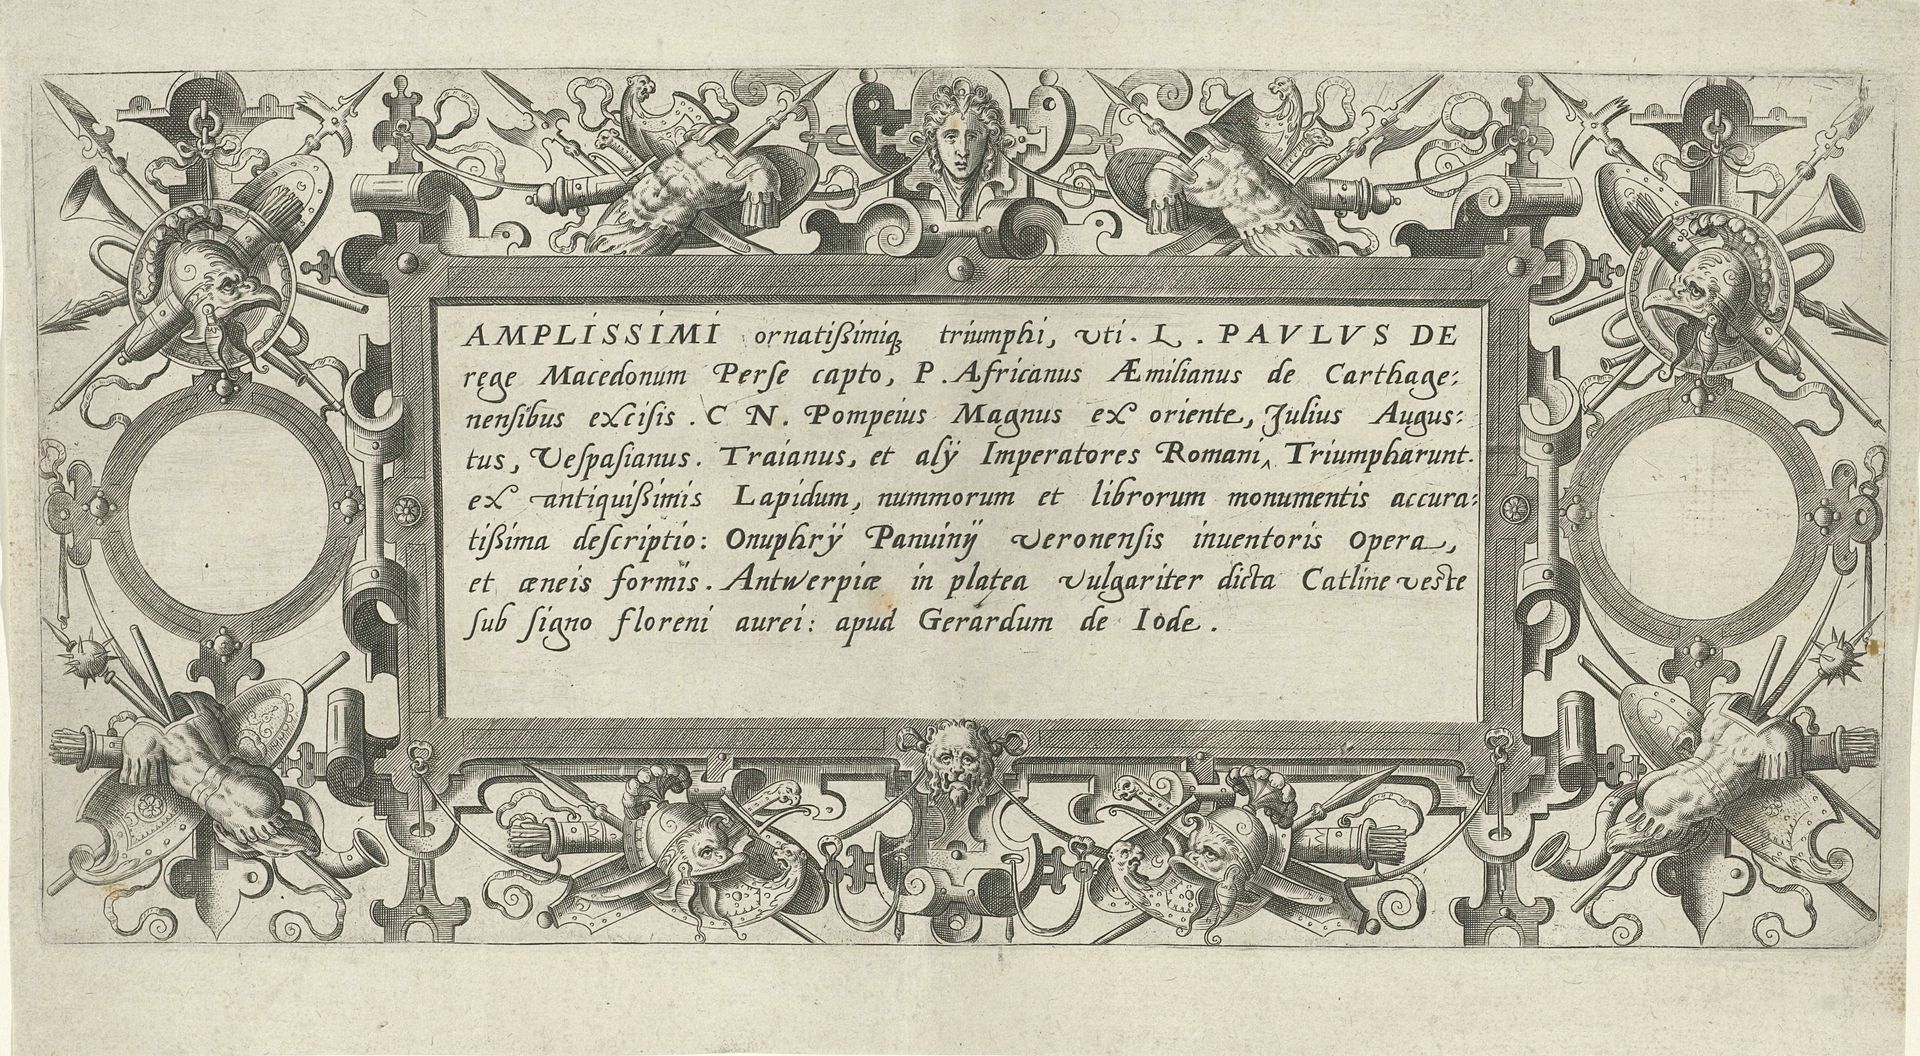 AMPLISSIMI ornatißimiqꝫ triumphi, vti. L. PAVLVS DE
rege Macedonum Perſe capto, P. Africanus Æmilianus de Carthage:
nenſibus exciſis. C N. Pompeius Magnus ex oriente, Julius Augus:
tus, Veſpaſianus. Traianus, et alÿ Imperatores Romani, Triumpharunt.
ex antiquißimis Lapidum, nummorum et librorum monumentis accura:
tißima deſcriptio: Onuphrÿ Panuinÿ veronenſis inuentoris opera,
et æneis formis. Antwerpiæ in platea vulgariter dicta Catline veste
ſub ſigno floreni aurei: apud Gerardum de Iode.